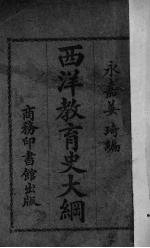 永嘉姜琦編
西洋教育史大綱
商務印書館出版